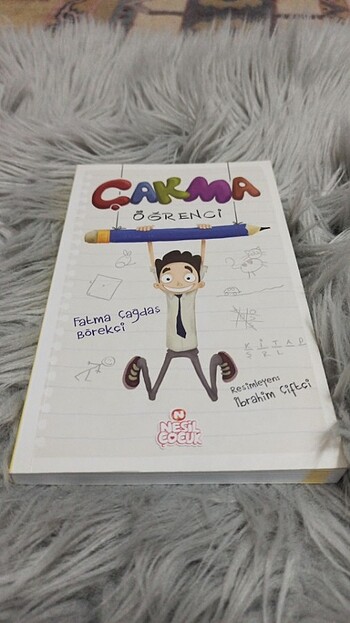 ÇAKMA
ÖĞRENCİ
Fatma Çağdaş
Börekçi
KİTAP
Resimleyen:
İbrahim Çiftçi
N
NESİL
ÇOCUK